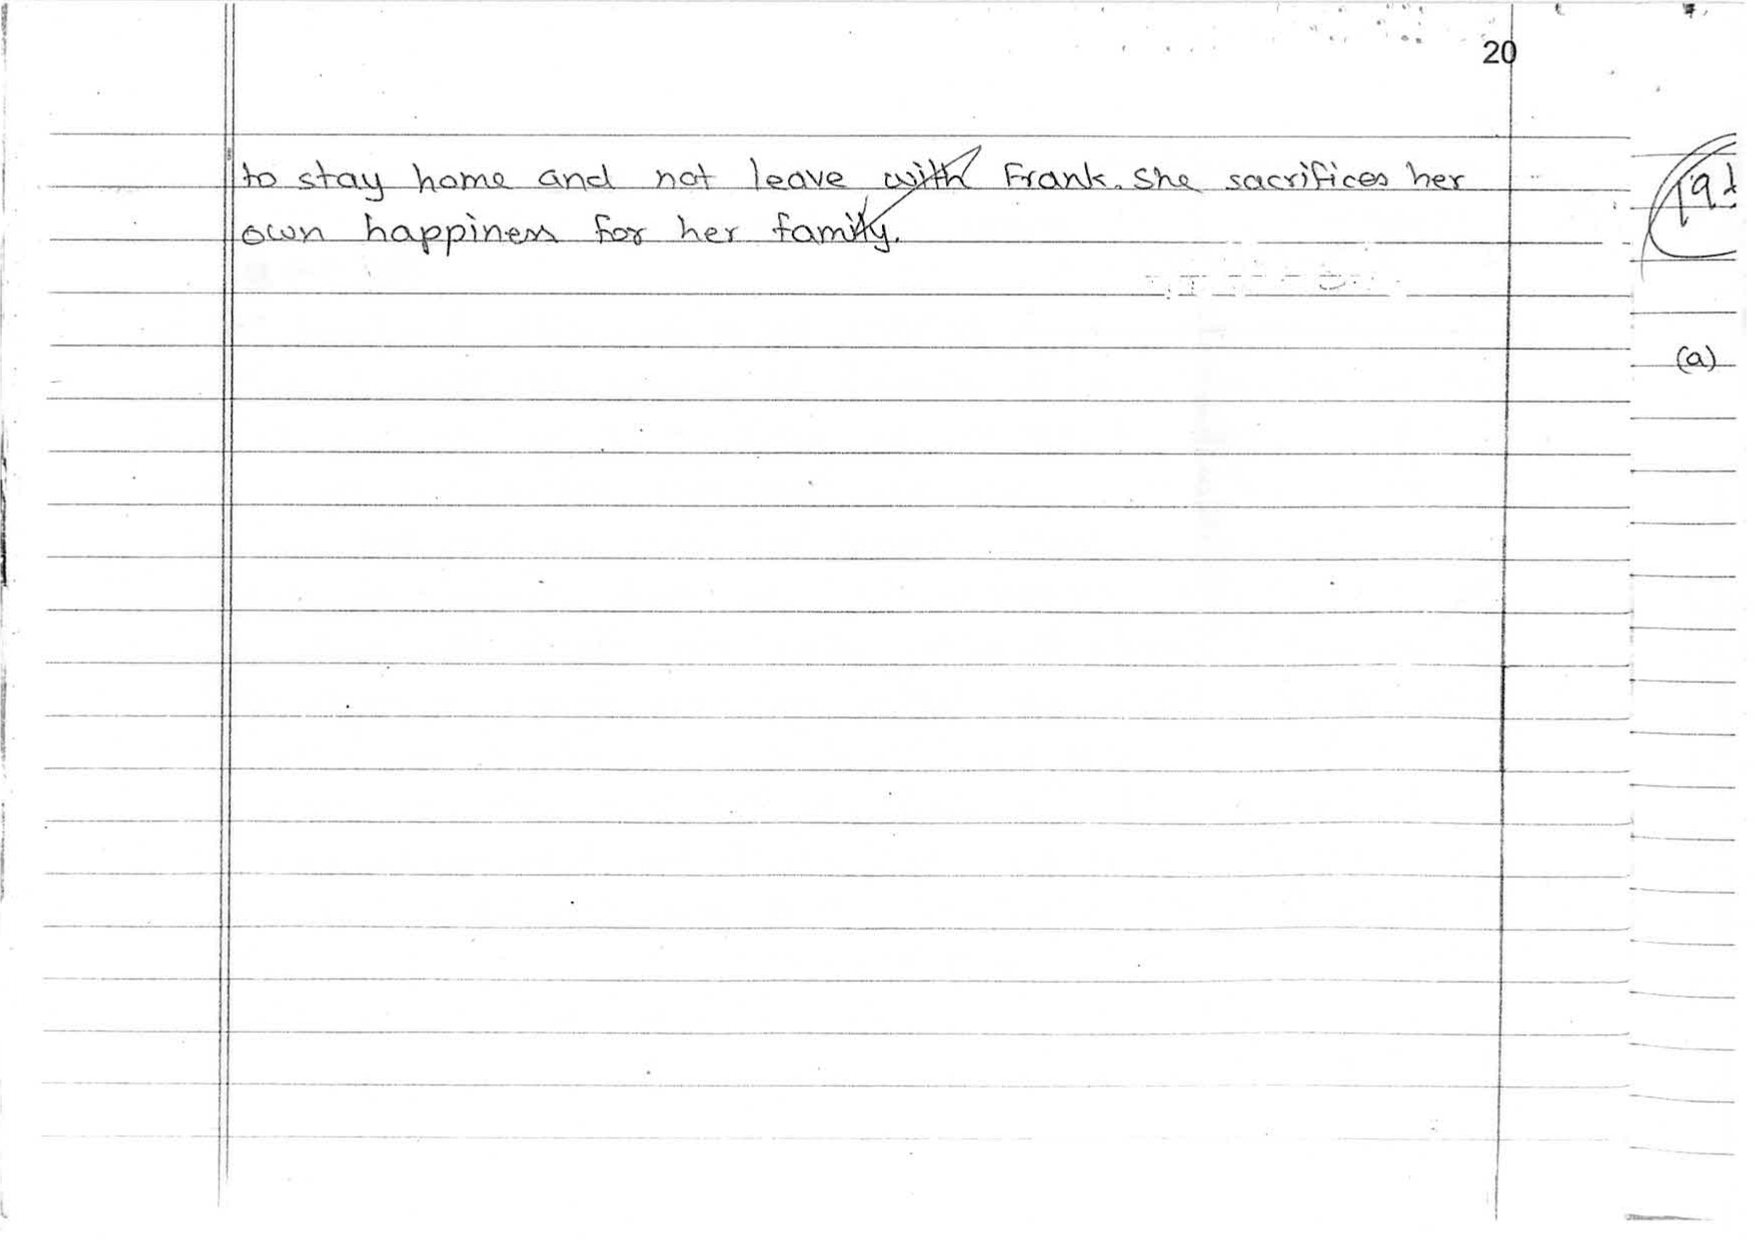 20
to stay home and not leave with Frank. She sacrifices her
own happiness for her family.
(a)